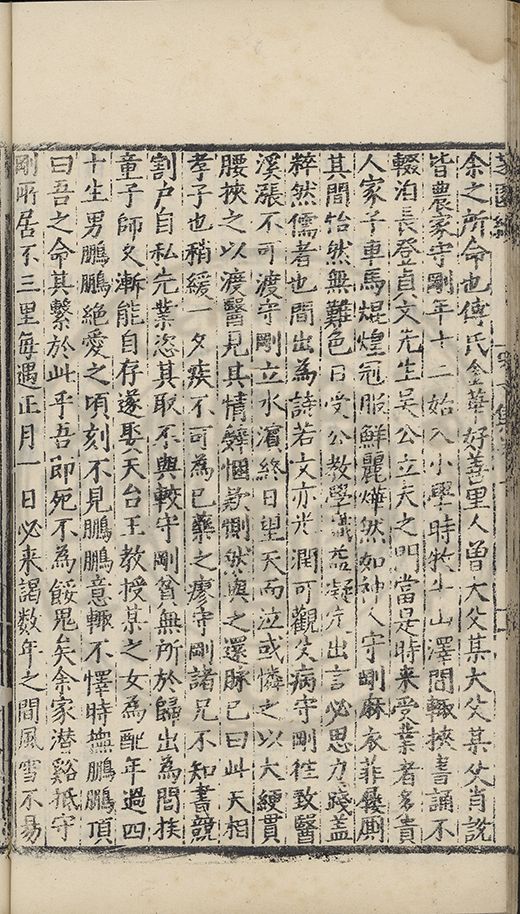 余之所命也傅氏金華好善里人曾大父某大父某父肖說
皆農家守剛年十二始入小學時牧牛山澤間輙挾書誦不
輟泊長登貞文先生吳公立夫之門當是時来受業者多貴
人家子車馬焜煌冠服鮮麗燁然如神人守剛麻衣菲屨厠
其間怡然無難色日受公教學議益凝定出言必思力踐蓋
粹然儒者也間出為詩若文亦光潤可觀父病守剛徃致醫
溪漲不可渡守剛立水濵終日望天而泣或憐之以大綆貫
腰挾之以渡醫見其情辤悃欵惻然與之還脉已曰此天相
孝子也稍緩一夕疾不可為已藥之廖守剛諸兄不知書競
割户自私先業恣其取不與較守剛貧無所於歸出為閭挨
童子師久漸能自存遂娶天台王教授某之女為配年過四
十生男鵬鵬絶愛之頃刻不見鵬鵬意輙不懌時撫鵬鵬頂
曰吾之命其繫於此乎吾即死不為餒鬼矣余家潜谿抵守
剛所居不三里每遇正月一日必来謁数年之間風雪不易